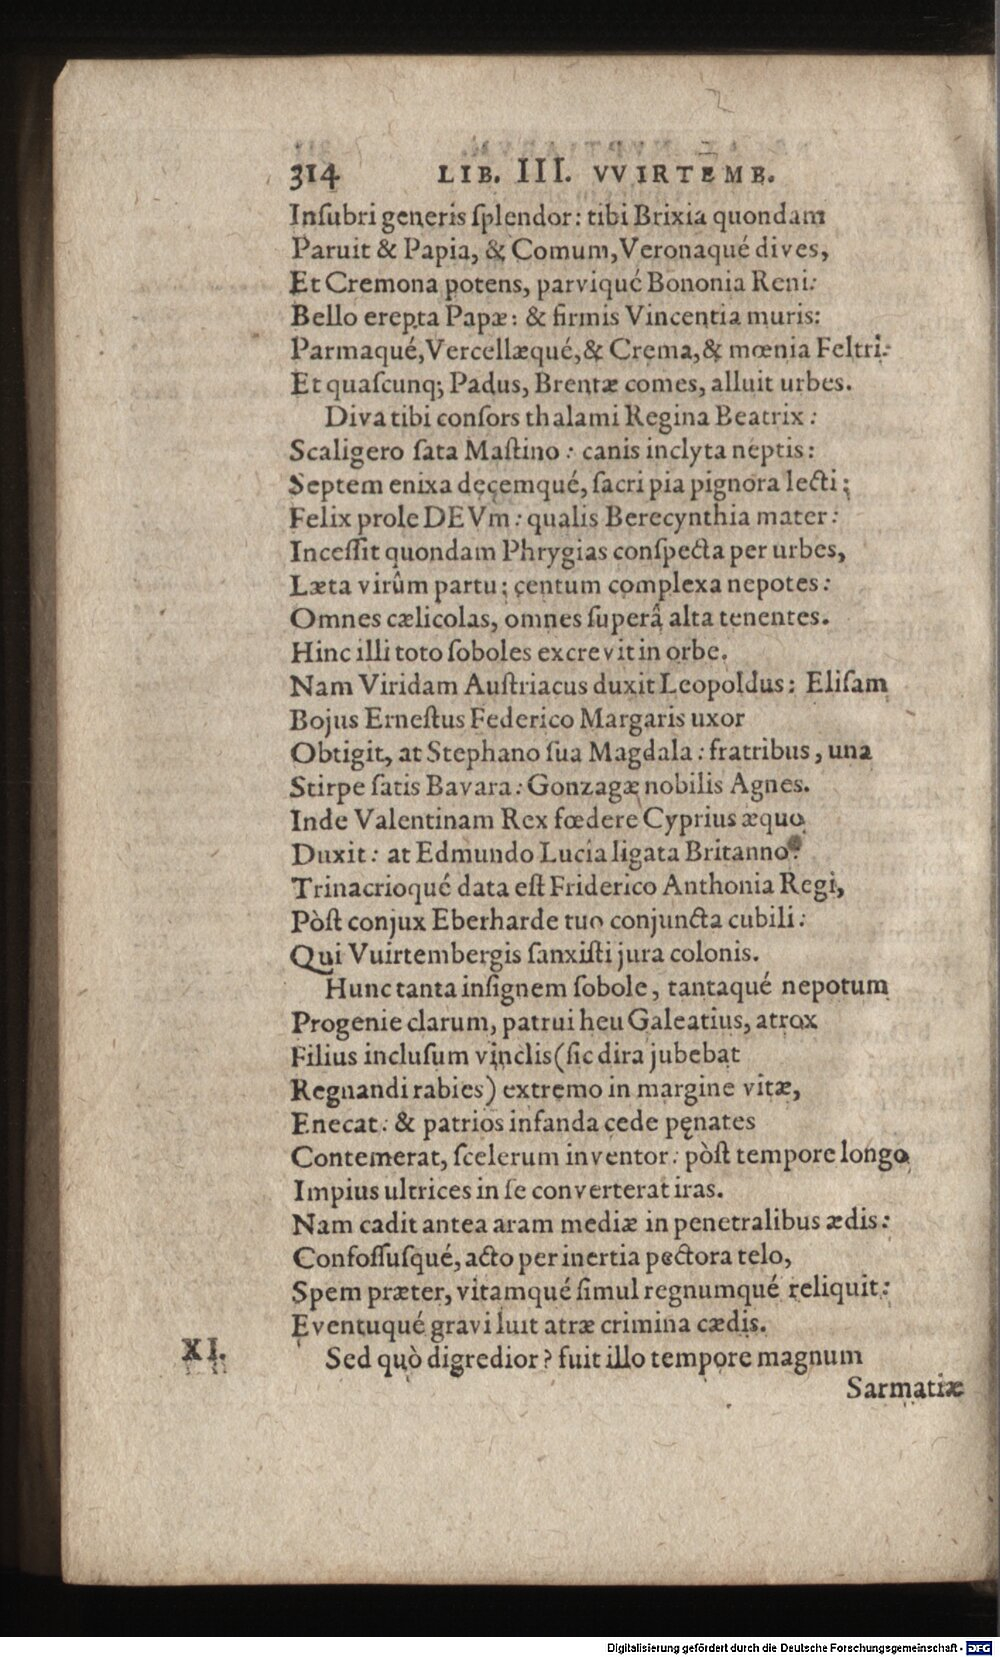 314 LIB. III. VVIRTEMB.
Inſubri generis ſplendor: tibi Brixia quondam
Paruit & Papia, & Comum, Veronaqué dives,
Et Cremona potens, parviqué Bononia Reni:
Bello erepta Papæ: & firmis Vincentia muris:
Parmaqué, Vercellæqué, & Crema, & mœnia Feltri:
Et quaſcunq; Padus, Brentæ comes, alluit urbes.
Diva tibi conſors thalami Regina Beatrix:
Scaligero ſata Maſtino: canis inclyta neptis:
Septem enixa decemqué, ſacri pia pignora lecti;
Felix prole DEVm: qualis Berecynthia mater:
Inceſſit quondam Phrygias conſpecta per urbes,
Læta virûm partu; centum complexa nepotes:
Omnes cælicolas, omnes ſuperâ alta tenentes.
Hinc illi toto ſoboles excrevit in orbe.
Nam Viridam Auſtriacus duxit Leopoldus: Eliſam
Bojus Erneſtus Federico Margaris uxor
Obtigit, at Stephano ſua Magdala: fratribus, una
Stirpe ſatis Bavara: Gonzagæ nobilis Agnes.
Inde Valentinam Rex fœdere Cyprius æquo
Duxit: at Edmundo Lucia ligata Britanno:
Trinacrioqué data eſt Friderico Anthonia Regi,
Pòſt conjux Eberharde tuo conjuncta cubili:
Qui Vuirtembergis ſanxiſti jura colonis.
Hunc tanta inſignem ſobole, tantaqué nepotum
Progenie clarum, patrui heu Galeatius, atrox
Filius incluſum vinclis (ſic dira jubebat
Regnandi rabies) extremo in margine vitæ,
Enecat: & patrios infanda cede pęnates
Contemerat, ſcelerum inventor: pòſt tempore longo
Impius ultrices in ſe converterat iras.
Nam cadit antea aram mediæ in penetralibus ædis:
Confoſſuſqué, acto per inertia pectora telo,
Spem præter, vitamqué ſimul regnumqué reliquit:
Eventuqué gravi luit atræ crimina cædis.
XI. Sed quò digredior? fuit illo tempore magnum
Sarmatiæ
Digitalisierung gefördert durch die Deutsche Forschungsgemeinschaft - DFG